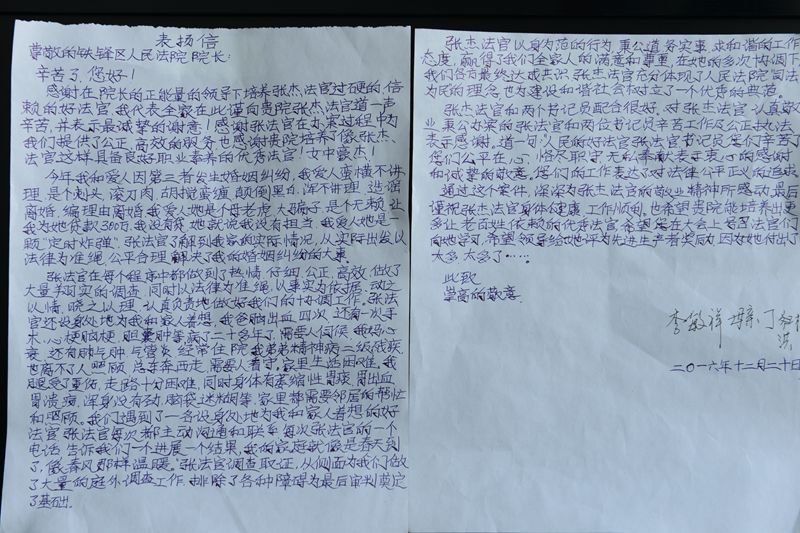 表扬信
尊敬的铁驿区人民法院院长:
辛苦了,您好!
感谢在院长的正能量的领导下培养张杰法官过硬的,信
赖的好法官,我代表全家在此谨向贵院张杰法官道一声
辛苦,并表示最诚挚的谢意!感谢张杰法官在办案过程中为
我们提供了公正,高效的服务也感谢贵院培养了像张杰
法官这样具备良好职业素养的优秀法官!女中豪杰!
今年我和爱人因第三者发生婚姻纠纷,我爱人蛮横不讲
理,是个刺头,滚刀肉,胡搅蛮缠,颠倒黑白,浑不讲理,造谣
离婚,编理由离婚,我爱人她是个母老虎,大骗子,是个无赖,让
我为她贷款380万,我没有贷,她就说我没有担当,我爱人她是一
颗"定时炸弹"。张法官了解到我家的实际情况,从实际出发,以
法律为准绳,公平合理,解决了我的婚姻纠纷的大事。
张法官在每个程序中都做到了热情,仔细,公正,高效,做了
大量详实的调查,同时以法律为准绳,以事实为依据,动之
以情,晓之以理,认真负责地做好我们的协调工作,张法
官还设身处地为我和家人着想,我爸脑出血四次,还有一次手
术,心梗脑梗,胆囊肿等病了二十多年了,需要人伺候,我妈心
衰,还有肺气肿,气管炎,经常住院,我弟弟精神病二级残疾,
也离不了人照顾,总东奔西走,需要人看守,家里生活困难,我
腿受了重伤,走路十分困难,同时身体有萎缩性胃炎,胃出血
胃溃疡,浑身没有劲,脑袋迷糊等,家里都需要邻居的帮忙
和照顾。我们遇到了一名设身处地为我和家人着想的好
法官,张法官每次都主动沟通和联系,每次张法官的一个
电话,告诉我们一个进展一个结果,我的家庭就像是春天到
了,像春风那样温暖。张法官调查取证,从侧面为我们做
了大量的庭外调查工作,排除了各种障碍为最后审判奠定
了基础。
张杰法官以身为范的行为,秉公道务实事,求和谐的工作
态度,赢得了我们全家人的满意和尊重,在她的多次协调下
我们各方最终达成共识,张杰法官充分体现了人民法院司法
为民的理念,也为建设和谐社会树立了一个优秀的典范。
张杰法官和两个书记员配合很好,对张杰法官认真敬
业秉公办案的张法官和两位书记员辛苦工作及公正执法
表示感谢,道一句"人民的好法官张法官书记员您们辛苦了
您们公平在心,恪尽职守无私奉献表示衷心的感谢
和诚挚的敬意,您们的工作表达了对法律公平正义的追求
通过这个案件,深深为张杰法官的敬业精神所感动,最后
谨祝张杰法官身体健康,工作顺利,也希望贵院能培养出更
多让老百姓依赖的优秀法官,希望是在大会上号召法官们
向她学习,希望领导给她评为先进生产者奖励,因为她付出了
太多太多了……
此致
崇高的敬意
李敏祥
二〇一六年十二月二十日